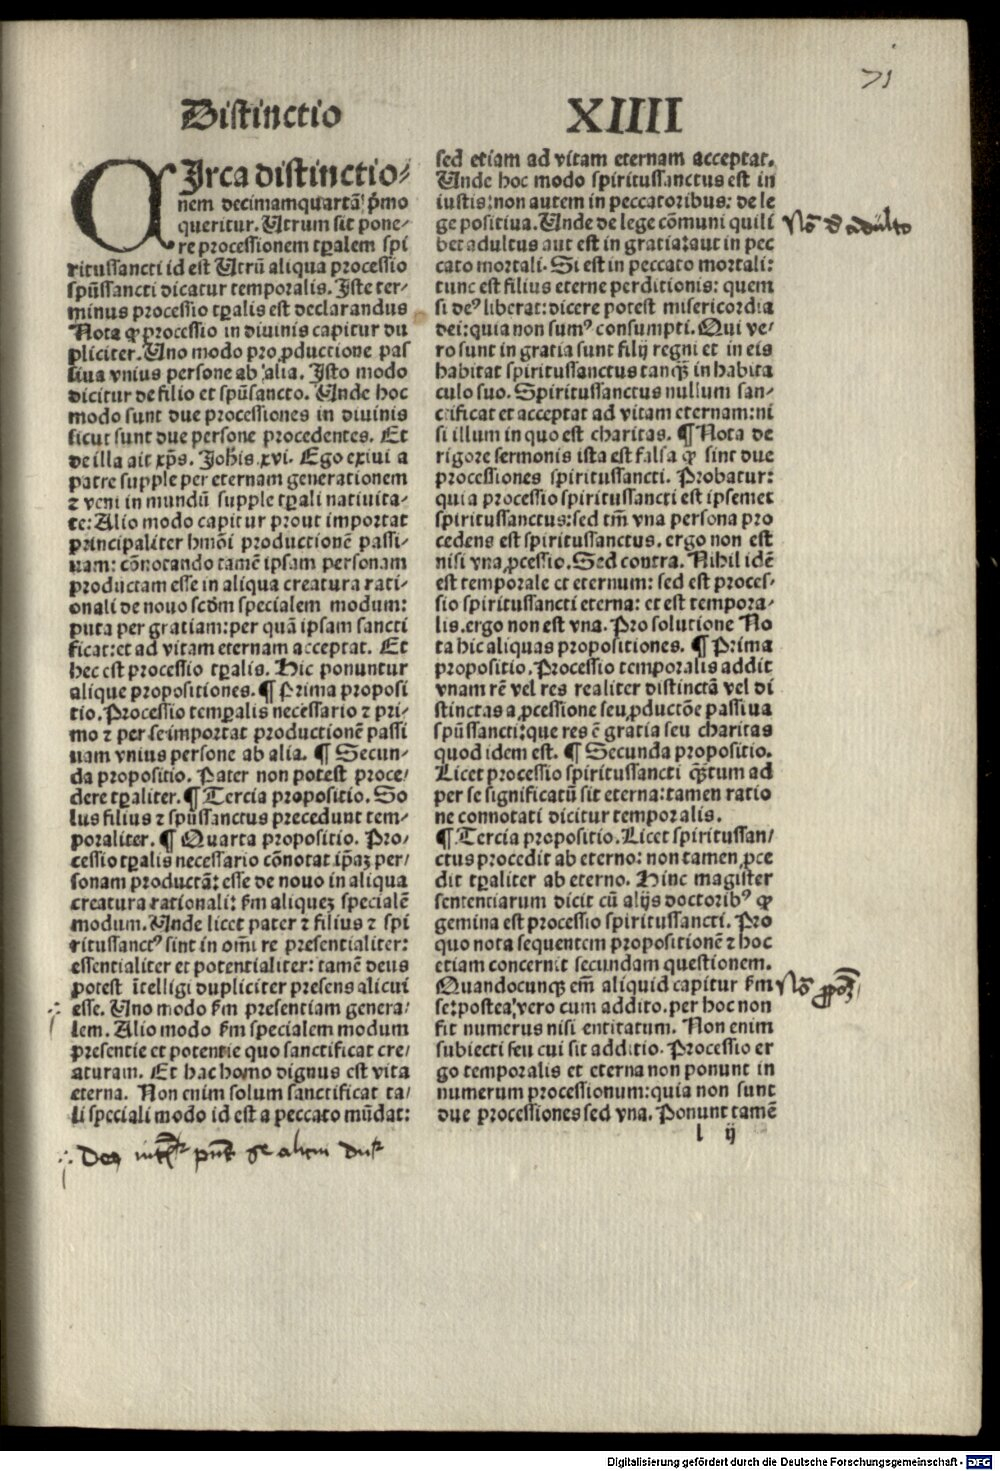 71
Distinctio XIIII
CIrca distinctio⸗
nem decimamquartā p̄mo
queritur. Utrum sit pone⸗
re processionem tꝑalem spi
ritussancti id est Utrū aliqua processio
spūssancti dicatur temporalis. Iste ter⸗
minus processio tꝑalis est declarandus
Nota ꝙ processio in diuinis capitur du
pliciter. Uno modo pro ꝓductione pas
siua vnius persone ab alia. Isto modo
dicitur de filio et spūsancto. Unde hoc
modo sunt due processiones in diuinis
sicut sunt due persone procedentes. Et
de illa ait xp̄s. Joh̄is.xvi. Ego exiui a
patre supple per eternam generationem
⁊ veni in mundū supple tꝑali natiuita⸗
te: Alio modo capitur prout importat
principaliter hmōi productionē passi⸗
uam: cōnotando tamē ipsam personam
productam esse in aliqua creatura rati⸗
onali de nouo scd̄m specialem modum:
puta per gratiam: per quā ipsam sancti
ficat: et ad vitam eternam acceptat. Et
hec est processio tꝑalis. Hic ponuntur
alique propositiones. ¶ Prima proposi
tio. Processio temꝑalis necessario ⁊ pri⸗
mo ⁊ per se importat productionē passi
uam vnius persone ab alia. ¶ Secun⸗
da propositio. Pater non potest proce⸗
dere tꝑaliter. ¶ Tercia propositio. So
lus filius ⁊ spūssanctus precedunt tem⸗
poraliter. ¶ Quarta propositio. Pro⸗
cessio tꝑalis necessario cōnotat ip̄aꝫ per⸗
sonam productā: esse de nouo in aliqua
creatura rationali: ẜm aliqueꝫ specialē
modum. Unde licet pater ⁊ filius ⁊ spi
ritussanctꝰ sint in om̄i re presentialiter:
essentialiter et potentialiter: tamē deus
potest ītelligi dupliciter presens alicui
esse. Uno modo ẜm presentiam genera⸗
lem. Alio modo ẜm specialem modum
presentie et potentie quo sanctificat cre⸗
aturam. Et hac homo dignus est vita
eterna. Non enim solum sanctificat ta⸗
li speciali modo id est a peccato mūdat:
sed etiam ad vitam eternam acceptat.
Unde hoc modo spiritussanctus est in
iustis: non autem in peccatoribus: de le
ge positiua. Unde de lege cōmuni quili
bet adultus aut est in gratia: aut in pec
cato mortali. Si est in peccato mortali:
tunc est filius eterne perditionis: quem
si deꝰ liberat: dicere potest misericordia
dei: quia non sumꝰ consumpti. Qui ve⸗
ro sunt in gratia sunt filij regni et in eis
habitat spiritussanctus tanqꝫ in habita
culo suo. Spiritussanctus nullum san⸗
ctificat et acceptat ad vitam eternam: ni
si illum in quo est charitas. ¶ Nota de
rigore sermonis ista est falsa ꝙ sint due
processiones spiritussancti. Probatur:
quia processio spiritussancti est ipsemet
spiritussanctus: sed tm̄ vna persona pro
cedens est spiritussanctus. ergo non est
nisi vna ꝓcessio. Sed contra. Nihil idē
est temporale et eternum: sed est proces⸗
sio spiritussancti eterna: et est tempora⸗
lis. ergo non est vna. Pro solutione No
ta hic aliquas propositiones. ¶ Prima
propositio. Processio temporalis addit
vnam rē vel res realiter distinctā vel di
stinctas a ꝓcessione seu ꝓductōe passiua
spūssancti: que res ē gratia seu charitas
quod idem est. ¶ Secunda propositio.
Licet processio spiritussancti qꝫtum ad
per se significatū sit eterna: tamen ratio
ne connotati dicitur temporalis.
¶ Tercia propositio. Licet spiritussan⸗
ctus procedit ab eterno: non tamen ꝓce
dit tꝑaliter ab eterno. Hinc magister
sententiarum dicit cū alijs doctoribꝰ ꝙ
gemina est processio spiritussancti. Pro
quo nota sequentem propositionē ⁊ hoc
etiam concernit secundam questionem.
Quandocunqꝫ em̄ aliquid capitur ẜm
se: postea vero cum addito. per hoc non
fit numerus nisi entitatum. Non enim
subiecti seu cui fit additio. Processio er
go temporalis et eterna non ponunt in
numerum processionum: quia non sunt
due processiones sed vna. Ponunt tamē
l ij
Nō de adulto
Nō
Digitalisierung gefördert durch die Deutsche Forschungsgemeinschaft - DFG